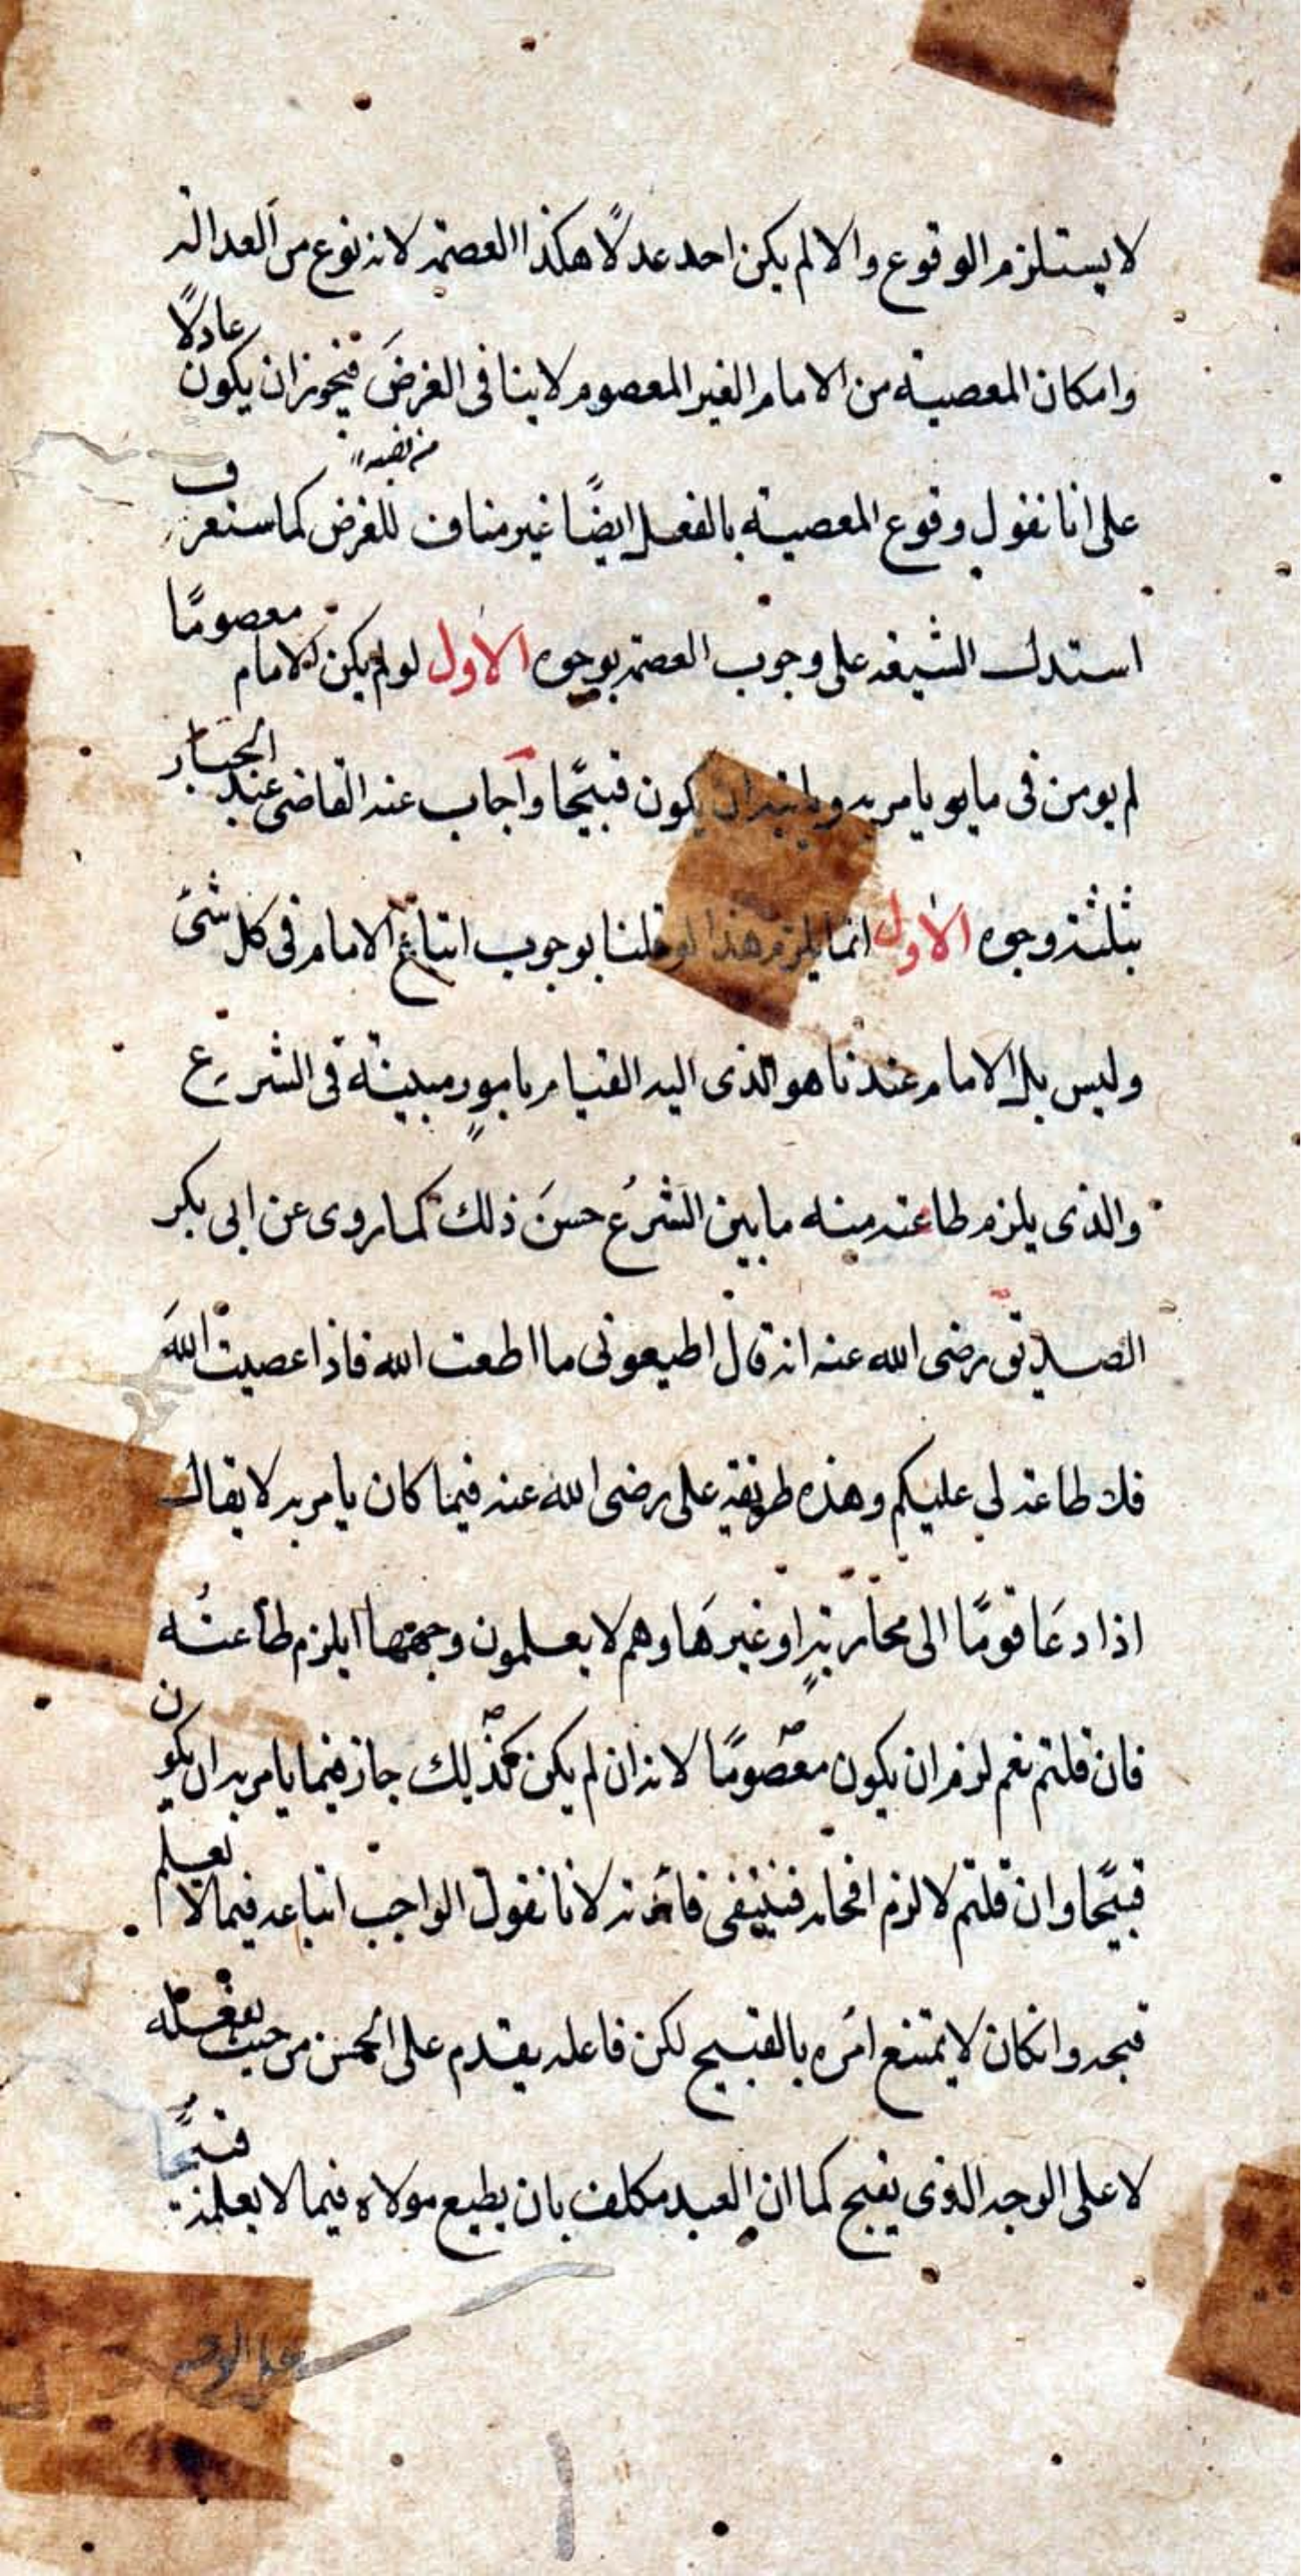 لا يستلزم الوقوع والا لم يكن احد عدلًا هكذا العصمة لانه نوع من العدالة
وامكان المعصية من الامام الغير المعصوم لا ينافى الغرضَ فيجوز ان يكون عادلًا
من نصبه
على انا نقول وقوع المعصية بالفعل ايضًا غير مناف للغرض كما ستعرف
استدل الشيعة على وجوب العصمة بوجوه الاول لو لم يكن الامام معصومًا
لم يومن فى ما يامر به ان يكون قبيحًا واجاب عنه القاضى عبد الجبار
بثلثة وجوه الاول انما يلزم هذا لو قلنا بوجوب اتباع الامام فى كل شئ
وليس بل الامام عندنا هو الذى اليه القيام بامورٍ مبينة فى الشرع
والذى يلزم طاعته منه ما بين الشرعُ حسنَ ذلك كما روى عن ابى بكر
الصديق رضى الله عنه انه قال اطيعونى ما اطعت الله فاذا عصيت اللهَ
فلا طاعة لي عليكم وهذه طريقة على رضى الله عنه فيما كان يامر به لا يقال
اذا دعَا قومًا الى محاربةٍ او غيرهَا وهم لا يعلمون وجهها ايلزم طاعتُه
فان قلتم نعم لزم ان يكون معصومًا لانه ان لم يكن كذلك جاز فيما يامر به ان يكون
قبيحًا وان قلتم لا لزم افحامه فينتفى فائدته لانا نقول الواجب اتباعه فيما لا نعلم
قبحه وانكان لا يمتنع امره بالقبيح لكن فاعله يقدم على الحسن من حيث يفعله
لا على الوجه الذى يقبح كما ان العبد مكلف بان يطيع مولاه فيما لا يعلمه قبيحًا
على الوجه